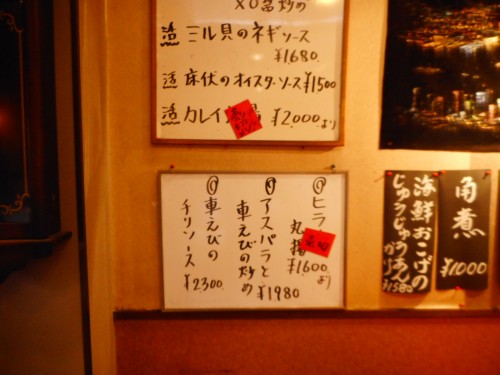 XO醤炒め
活 ミル貝のネギソース
¥1680.
活 床伏のオイスターソース ¥1500
活 カレイ
¥2,000.より
ヒラ
丸揚
¥1600より
アスパラと
車えびの炒め
¥1980
車えびの
チリソース
¥2300.
角煮
¥1000
海鮮おこげの
じゅうじゅうあん
かけ
¥1580